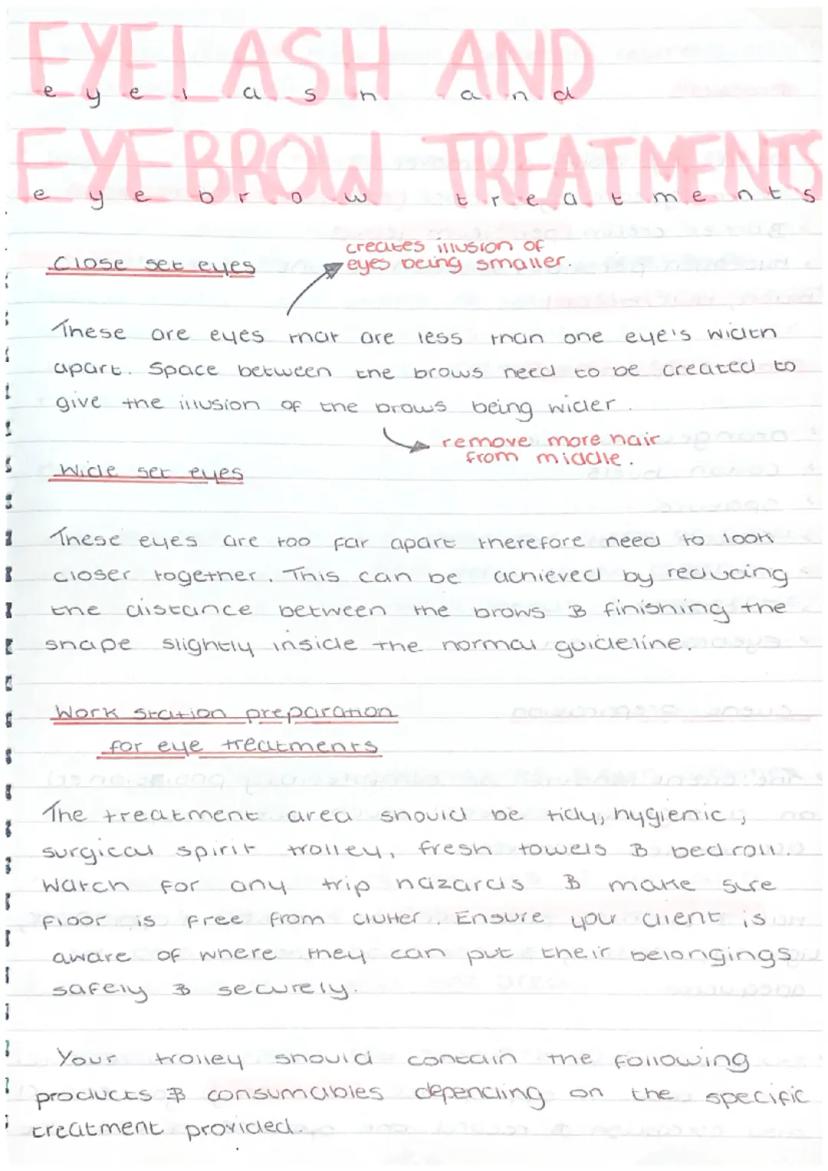 EYELASH AND
eyelash and
EYEBROW TREATMENTS
eyebrow treatments
creates illusion of
eyes being smaller.
Close set eyes
These are eyes that are less than one eye's width
apart. Space between the brows need to be created to
give the illusion of the brows being wider.
remove more hair
from middle.
Wide set eyes
These eyes are too far apart therefore need to look
closer together. This can be achieved by reducing
the distance between the brows & finishing the
shape slightly inside the normal guideline.
Work station preparation
for eye treatments
The treatment area should be tidy, hygienic,
surgical spirit trolley, fresh towels & bedroll.
Watch for any trip hazards & make sure
floor is free from clutter. Ensure you client is
aware of where they can put their belongings
safely & securely.
Your trolley should contain the following
products & consumables depending on the specific
treatment provided.